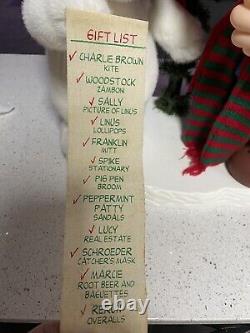 GIFT LIST
✓ CHARLIE BROWN
KITE
✓ WOODSTOCK
ZAMBONI
✓ SALLY
PICTURE OF LINUS
✓ LINUS
LOLLIPOPS
✓ FRANKLIN
MITT
✓ SPIKE
STATIONARY
✓ PIG PEN
BROOM
✓ PEPPERMINT
PATTY
SANDALS
✓ LUCY
REAL ESTATE
✓ SCHROEDER
CATCHER'S MASK
✓ MARCIE
ROOT BEER AND
BAGUETTES
✓ RERUN
OVERALLS